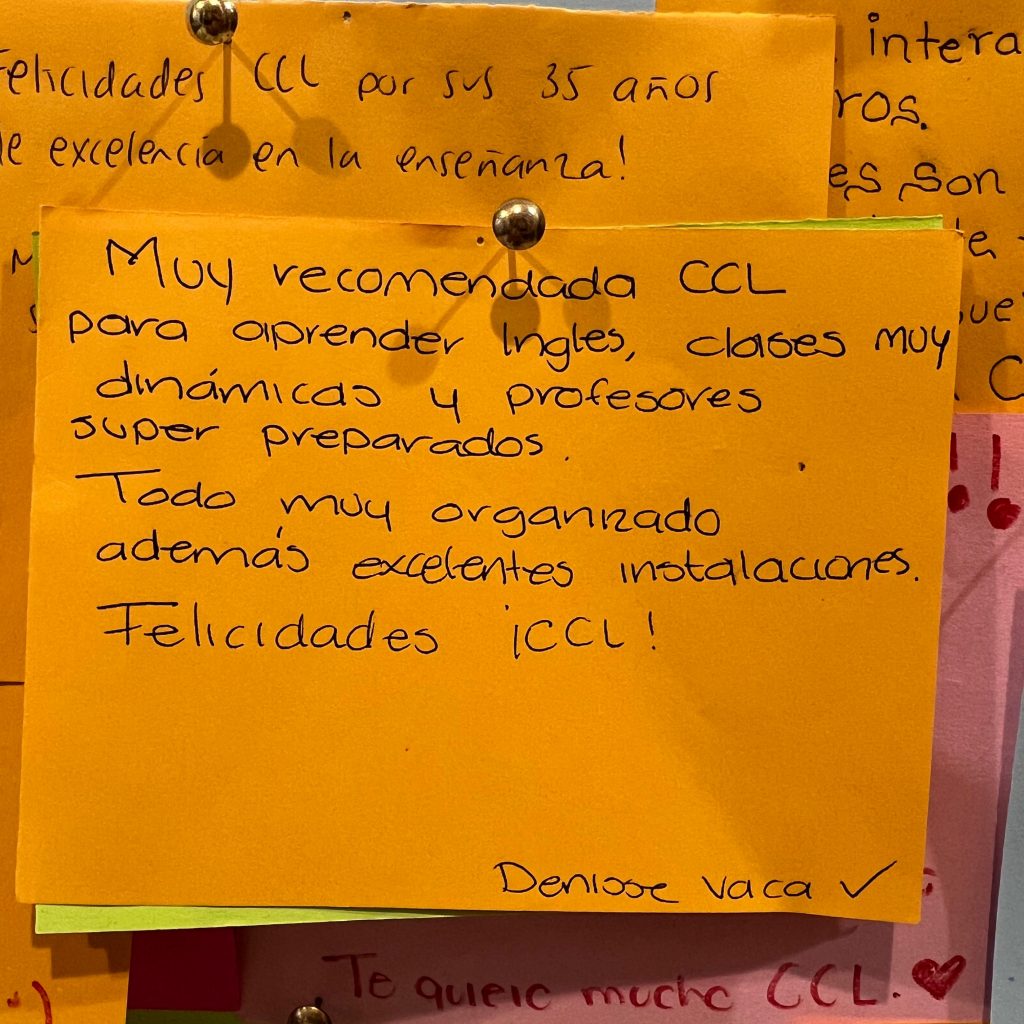 Felicidades CCL por sus 35 años
de excelencia en la enseñanza!
intera
ros.
es son
Muy recomendada CCL
para aprender Ingles, clases muy
dinámicas y profesores
super preparados.
Todo muy organizado
además excelentes instalaciones.
Felicidades ¡CCL!
Denisse Vaca ✓
Te quiero mucho CCL. ♥